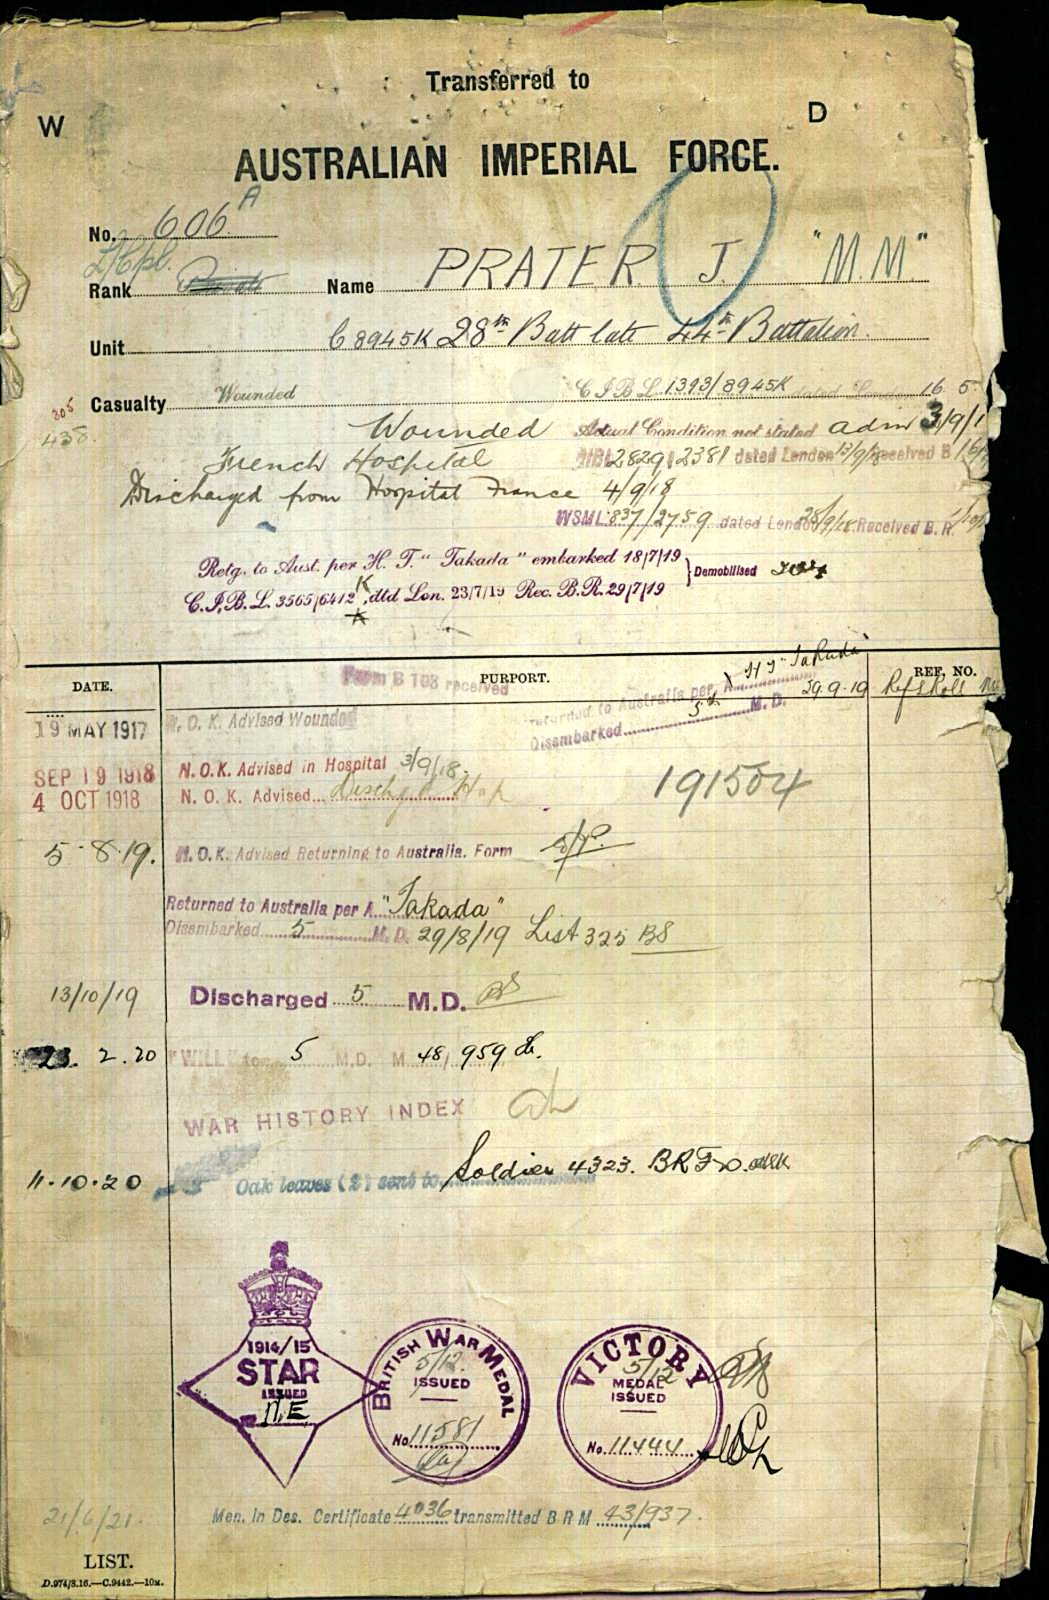 Transferred to
W D
AUSTRALIAN IMPERIAL FORCE.
No. 606 A
L/Cpl.
Rank Private Name PRATER J. "M.M."
Unit C8945K 28th Batt late 44th Battalion.
Casualty Wounded C I B L 1393/8945K dated London 16 5
305
438
Wounded Actual Condition not stated adm 3/9/1
French Hospital 2829/2381 dated London 13/9/18 Received B
Discharged from Hospital France 4/9/18
WSML 837/2759 dated London 28/9/18 Received B.R.
Retg. to Aust. per H. T. "Takada" embarked 18/7/19 } Demobilised
C.I.B.L. 3565/6412 K, dtd Lon. 23/7/19 Rec. B.R. 29/7/19
K
DATE. PURPORT. REF. NO.
Form B 103 received
Returned to Australia per A H T "Takada"
Disembarked 5 M.D. 29.9.19
19 MAY 1917 N. O. K. Advised Wounded
SEP 19 1918 N.O.K. Advised in Hospital 3/9/18.
4 OCT 1918 N. O. K. Advised Dischgd Hosp
191504
5-8-19. N.O.K. Advised Returning to Australia. Form
Returned to Australia per A "Takada"
Disembarked 5 M.D. 29/8/19 List 325 BS
13/10/19 Discharged 5 M.D. BS
23. 2. 20 "WILL" to 5 M.D. M 48,959
WAR HISTORY INDEX
11.10.20 Oak leaves (2) sent to Soldier 4323. BR
1914/15
STAR
ISSUED
N.E.
BRITISH WAR MEDAL
5/12.
ISSUED
No 11581
VICTORY
5/12
MEDAL
ISSUED
No. 11444
21/6/21. Men. in Des. Certificate 4036 transmitted B R M 43/937.
LIST.
D.974/8.16.—C.9442.—10M.